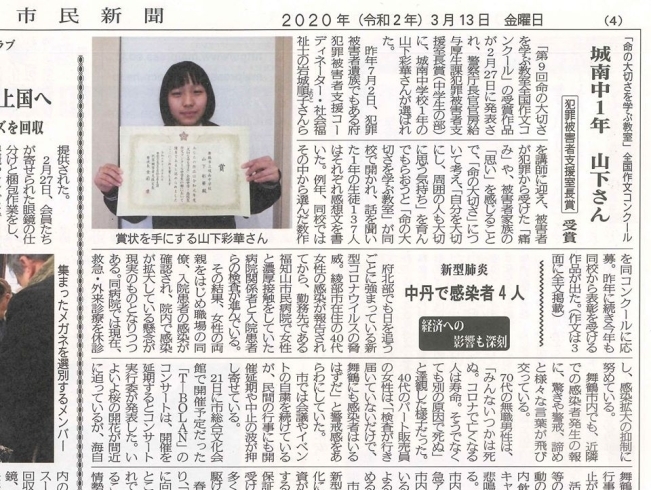 市民新聞
2020年(令和2年)3月13日 金曜日
(4)
「命の大切さを学ぶ教室」全国作文コンクール
城南中1年 山下さん
犯罪被害者支援室長賞 受賞
「第9回命の大切さ
を学ぶ教室全国作文コ
ンクール」の受賞作品
が2月27日に発表さ
れ、警察庁長官官房給
与厚生課犯罪被害者支
援室長賞(中学生の部)
に、城南中学校1年の
山下彩華さんが選ばれ
た。
昨年7月2日、犯罪
被害者遺族でもある府
犯罪被害者支援コー
ディネーター・社会福
祉士の岩城順子さんら
を講師に迎え、被害者
が犯罪から受けた「痛
み」や、被害者家族の
「思い」を感じること
で、「命の大切さ」につ
いて考え、「自分を大切
にし、周囲の人も大切
に思う気持ち」を育ん
でもらおうと「命の大
切さを学ぶ教室」が同
校で開かれ、話を聞い
た1年の生徒137人
はそれぞれ感想文を書
いた。例年、同校では
その中から選んだ教作
を同コンクールに応
募。昨年に続き今年も
同校から表彰を受ける
作品が出た。(作文は3
面に全文掲載)
賞状を手にする山下彩華さん
新型肺炎
中丹で感染者4人
経済への
影響も深刻
府北部でも日を追う
ごとに強まっている新
型コロナウイルスの脅
威。綾部市在住の40代
女性の感染が報告され
てから、勤務先である
福知山市民病院で女性
と濃厚接触をしていた
病院関係者と入院患者
らの検査が進んでいる。
その結果、女性の両
親をはじめ職場の同
僚、入院患者の感染が
確認され、院内で感染
が拡大している懸念が
現実のものとなりつつ
ある。同病院では現在、
救急・外来診療を休診
し、感染拡大の抑制に
努めている。
舞鶴市内でも、近隣
での感染者発生の報
に、驚きや警戒、諦め
と様々な言葉が飛び
交っている。
70代の無職男性は、
「みんないつかは死
ぬ。コロナで亡くなる
人は寿命。そうでなく
ても別の原因で死ぬ」
と達観した様子だった。
40代のパート販売員
の女性は、「検査が行き
届いていないだけで、
舞鶴にも感染者はいる
はずだ」と警戒感をあ
らわにしていた。
市では会議やイベン
トの自粛を続けている
が、民間の行事にも開
催延期や中止の波が押
し寄せている。
21日に市総合文化会
館で開催予定だった
「TIBOLAN」の
コンサートは、開催を
延期するとコンサート
実行委が発表した。い
よいよ桜の開花が間近
に迫っているが、海自
上国へ
ズを回収
提供された。
2月27日、会員たち
が寄せられた眼鏡の仕
分けと梱包作業をし、
集まったメガネを選別するメンバー